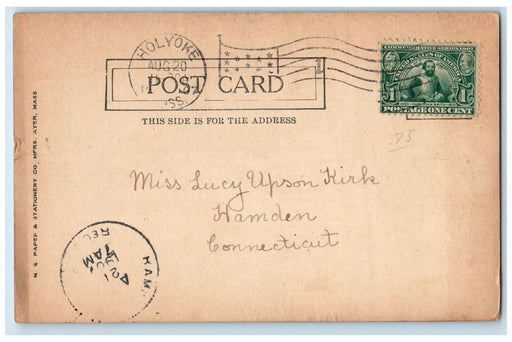 HOLYOKE
AUG 20
MASS.
1
POST CARD
THIS SIDE IS FOR THE ADDRESS
COMMEMORATIVE SERIES 1907
UNITED STATES OF AMERICA
1 1
POSTAGE ONE CENT
75
Miss Lucy Upson Kirk
Hamden
Connecticut
HAM
REC
A
21
7 AM
N. E. PAPER & STATIONERY CO., MFRS., AYER, MASS